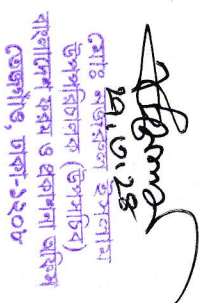 ২৭.৩.২৪
মোঃ নজরুল ইসলাম
উপপরিচালক (উপসচিব)
বাংলাদেশ ফরম ও প্রকাশনা অফিস
তেজগাঁও, ঢাকা-১২০৮